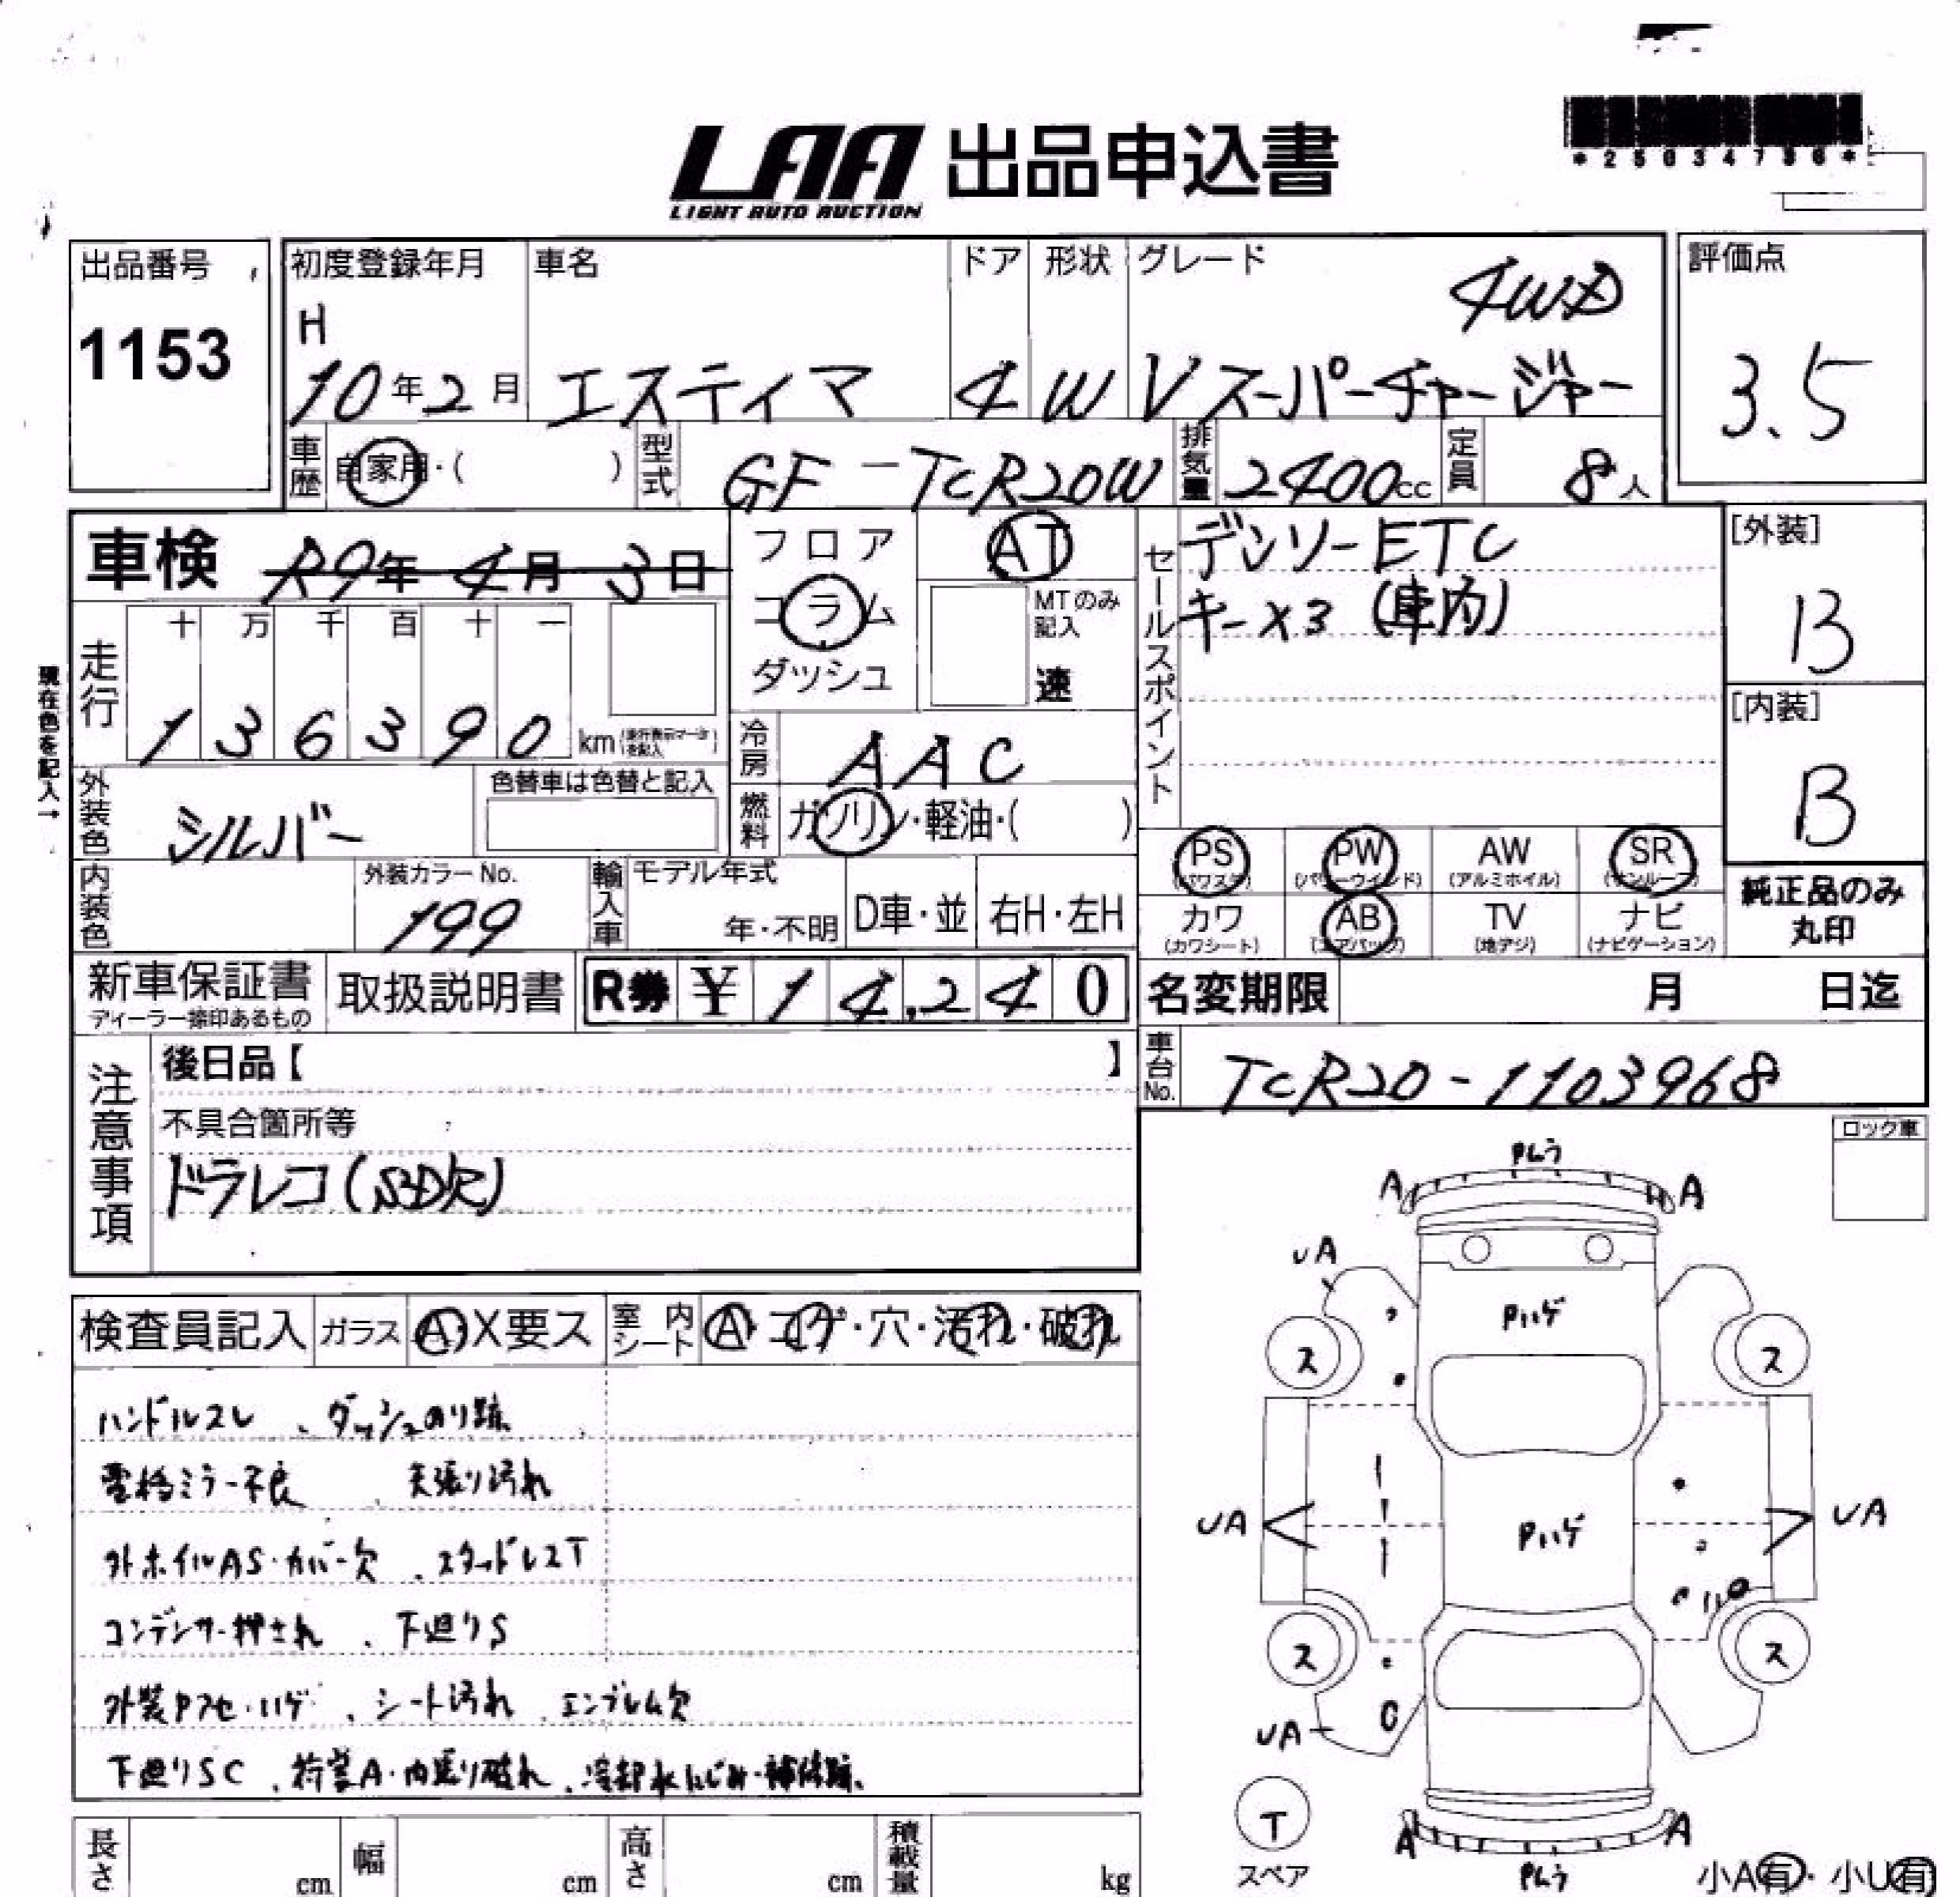 LAA 出品申込書
LIGHT AUTO AUCTION
*25034736*
出品番号
1153
初度登録年月 車名 ドア 形状 グレード
H 4WD
10年2月 エスティマ 4 W Vスーパーチャージャー
評価点
3.5
車歴 自家用・( ) 型式 GF-TCR20W 排気量 2400cc 定員 8人
車検 R9年4月3日
フロア
コラム
ダッシュ
AT
MTのみ記入
速
セールスポイント
デンソーETC
キーx3(車内)
[外装]
B
[内装]
B
現在色を記入→
走行
十 万 千 百 十 一
1 3 6 3 9 0 km
冷房 AAC
外装色 シルバー
色替車は色替と記入
燃料 ガソリン・軽油・( )
PS PW AW SR
(パワステ) (パワーウインド) (アルミホイル) (サンルーフ)
カワ AB TV ナビ
(カワシート) (エアバック) (地デジ) (ナビゲーション)
純正品のみ
丸印
内装色
外装カラーNo.
199
輸入車
モデル年式
年・不明
D車・並 右H・左H
新車保証書
ディーラー捺印あるもの
取扱説明書
R券 ¥ 14,240
名変期限 月 日迄
車台No. TCR20-1103968
注意事項
後日品【 】
不具合箇所等
ドラレコ(SD欠)
ロック車
検査員記入 ガラス A・X要ス 室内シート A・コゲ・穴・汚れ・破れ
ハンドルスレ、ダッシュのり跡
電格ミラー不良、天張り汚れ
外ホイルAS・カバー欠、スタッドレスT
コンデンサー押され、下廻りS
外装Pアセ・ハゲ、シート汚れ、エンブレム欠
下廻りSC、荷室A・内張り破れ、冷却水にじみ・補修跡
Pムラ
A A
UA
Pハゲ
ス ス
UA Pハゲ UA
ス ス
UA
T
スペア
A A
Pムラ
小A有・小U有
長さ cm 幅 cm 高さ cm 積載量 kg